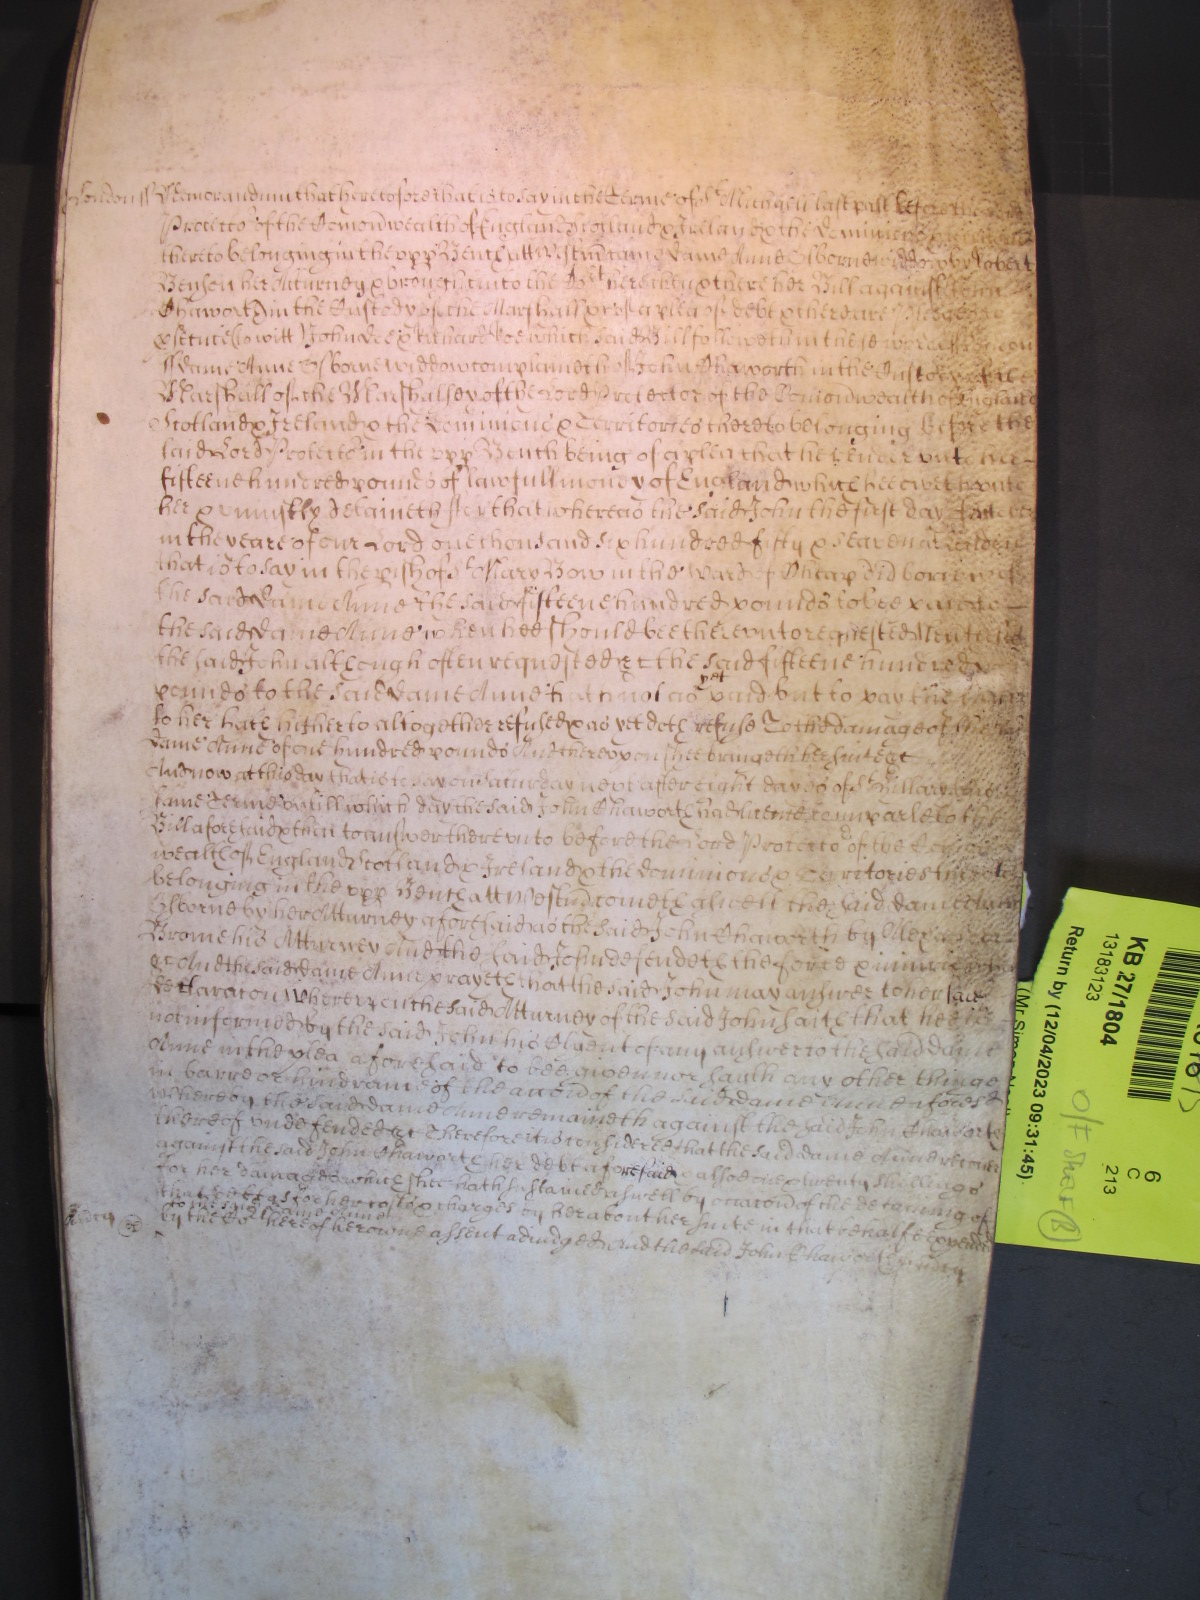 London ss Memorandum that heretofore that is to say in the Terme of St Michaell last past before the
Protector of the Comonwealth of England Scotland & Ireland & the dominions
thereto belonging in the upp Bench att Westm came dame Anne Osborne widdow by Robert
Benson her Atturney & brought into the Cort here then & there her Bill against John
Chaworth in the Custody of the Marshall &c of a plea of debt & there are pledges
&c John Doe & Richard Roe which said Bill followeth in these words London
ss dame Anne Osborne widdow complaineth of John Chaworth in the Custody of the
Marshall of the Marshalsey of the Lord Protector of the Comonwealth of England
Scotland & Ireland & the dominions & Territories thereto belonging before the
said Lord Protector in the upp Bench being of a plea that he render unto her
fifteene hundred pounds of lawfull money of England which hee oweth unto
her & uniustly detaineth for that whereas the said John the first day
in the yeare of our Lord one thousand six hundred fifty & seaven att London
that is to say in the pish of St Mary Bow in the Ward of Cheap did borrow of
the said dame Anne the said fifteene hundred pounds to bee paid to
the said dame Anne when hee should bee thereunto requested Neverthelesse
the said John although often requested &c the said fifteene hundred
pounds to the said dame Anne hath not as yet paid but to pay the same
to her hath hitherto altogether refused & as yet doth refuse To the damage of the said
dame Anne of one hundred pounds And thereupon shee bringeth her suit &c
And now at this day that is to say on Saturday next after eight dayes of St Hillary
same Terme untill which day the said John Chaworth had leave to imparle to the
Bill aforesaid & then to answer thereunto before the Lord Protector of the Comon
wealth of England Scotland & Ireland & the dominions & Territories thereto
belonging in the upp Bench att Westm cometh aswell the said dame Anne
Osborne by her Atturney aforesaid as the said John Chaworth by Alexander
Brome his Atturney And the said John defendeth the force & iniurie when
&c And the said dame Anne prayeth that the said John may answer to her said
declaracon Whereupon the said Atturney of the said John saith that hee is
not informed by the said John his Clyent of any answer to the said dame
Anne in the plea aforesaid to bee given nor saith any other thinge
in barre or hindrance of the accon of the said dame Anne aforesd
whereby the said dame Anne remaineth against the said John Chaworth
thereof undefended &c Therefore it is considered that the said dame Anne recover
against the said John Chaworth her debt aforesaid & alsoe twenty shillings
for her damages which shee hath sustained aswell by occacon of the detaining of
that debt as for her costs & charges by her about her suite in that behalfe expended
to the said dame Anne
by the Cort here of her owne assent adiudged And the said John Chaworth in mercy
KB 27/1804
13183123
Return by (12/04/2023 09:31:45)
6
C
213